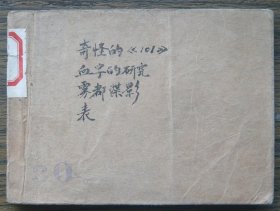 奇怪的《101》
血字的研究
雾都谍影
表